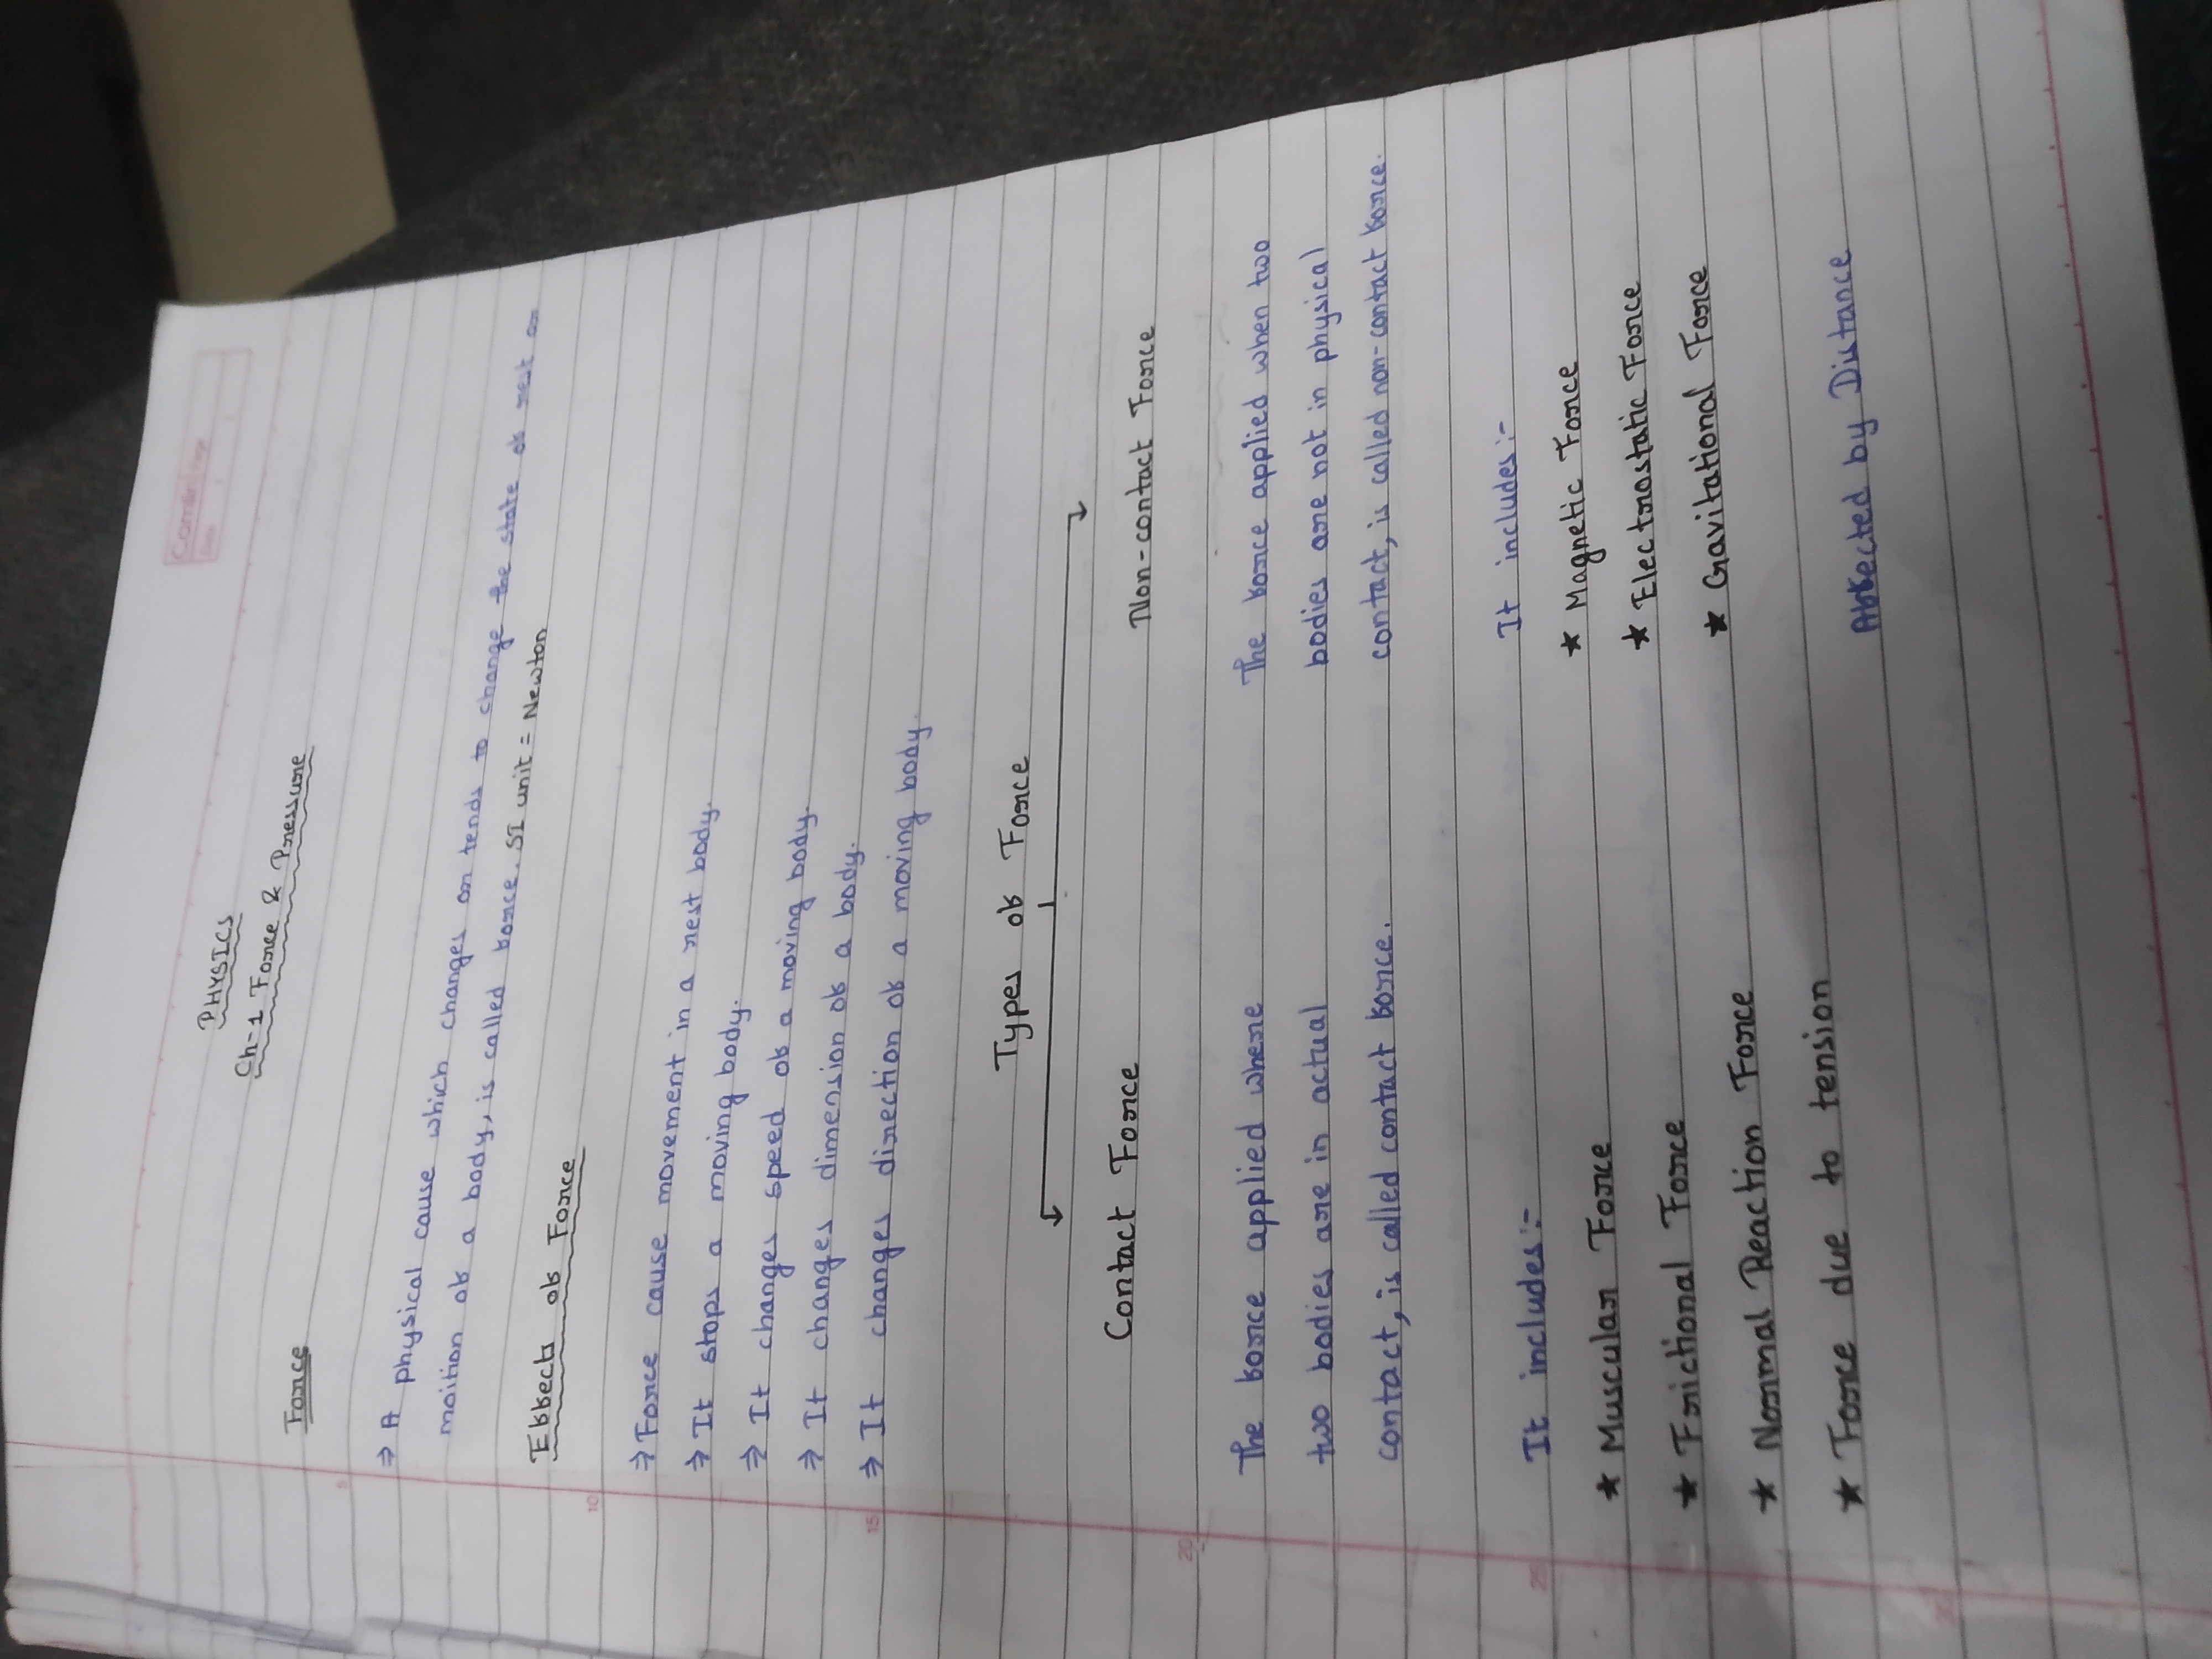 PHYSICS
Ch-1 Force & Pressure
Force
⇒ A physical cause which changes or tends to change the state of rest or
moition of a body, is called force. SI unit = Newton
Effects of Force
⇒ Force cause movement in a rest body.
⇒ It stops a moving body.
⇒ It changes speed of a moving body.
⇒ It changes dimension of a body.
⇒ It changes direction of a moving body.
Types of Force
Contact Force
The force applied where
two bodies are in actual
contact, is called contact force.
It includes:-
★ Muscular Force
★ Frictional Force
★ Normal Reaction Force
★ Force due to tension
Non-contact Force
The force applied when two
bodies are not in physical
contact, is called non-contact force.
It includes:-
★ Magnetic Force
★ Electrostatic Force
★ Gravitational Force
Affected by Distance
5
10
15
20
25
30